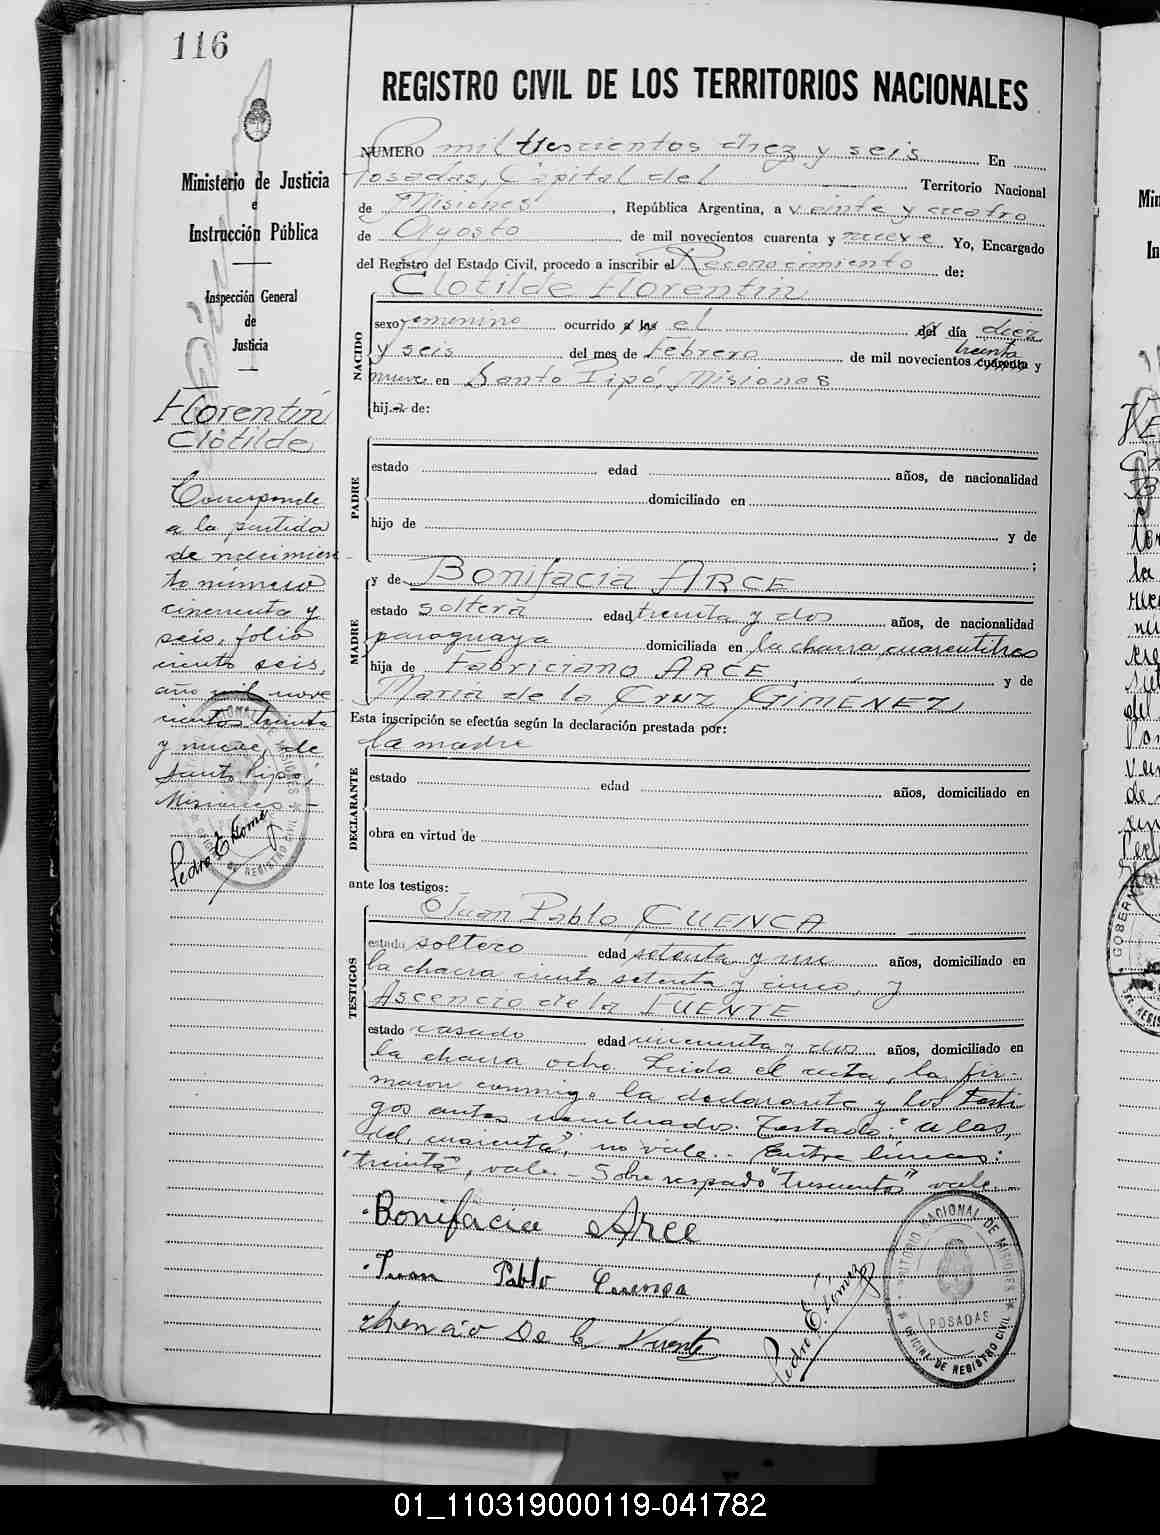 116
REGISTRO CIVIL DE LOS TERRITORIOS NACIONALES
Ministerio de Justicia
e
Instrucción Pública
Inspección General
de
Justicia
Florentín
Clotilde
Corresponde
a la partida
de nacimien-
to número
cincuenta y
seis, folio
ciento seis,
año mil nove
cientos treinta
y nueve, de
Santo Pipó,
Misiones.-
Pedro E. Gómez
NUMERO mil trescientos diez y seis En
Posadas, Capital del Territorio Nacional
de Misiones, República Argentina, a veinte y cuatro
de Agosto de mil novecientos cuarenta y nueve Yo, Encargado
del Registro del Estado Civil, procedo a inscribir el Reconocimiento de:
Clotilde Florentín
NACIDO
sexo femenino ocurrido a las el del día diez
y seis del mes de Febrero de mil novecientos cuarenta treinta y
nueve en Santo Pipó, Misiones
hij a de:
PADRE
estado edad años, de nacionalidad
domiciliado en
hijo de y de
;
MADRE
y de Bonifacia ARCE
estado soltera edad treinta y dos años, de nacionalidad
paraguaya domiciliada en la chacra cuarentitres
hija de Fabriciano ARCE, y de
María de la Cruz GIMÉNEZ,
Esta inscripción se efectúa según la declaración prestada por:
la madre
DECLARANTE
estado edad años, domiciliado en
obra en virtud de
ante los testigos:
TESTIGOS
Juan Pablo CUENCA
estado soltero edad setenta y un años, domiciliado en
la chacra ciento setenta y cinco, y
Ascencio de la FUENTE
estado casado edad cincuenta y dos años, domiciliado en
la chacra ocho. Leida el acta, la fir-
maron conmigo la declarante y los testi
gos antes nombrados. Testado: "a las,
del, cuarenta", no vale.- Entre líneas:
"treinta", vale.- Sobre raspado "trescientos" vale.-
Bonifacia Arce
Juan Pablo Cuenca
Asencio De la Fuente
Pedro E. Gómez
TERRITORIO NACIONAL DE MISIONES
POSADAS
OFICINA DE REGISTRO CIVIL
01_110319000119-041782